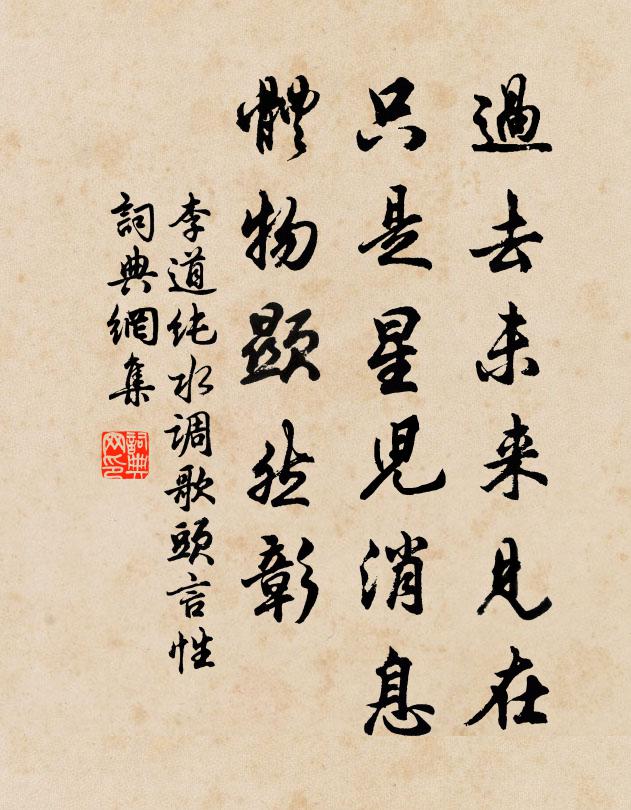 過去未来見在
只是星児消息
體物顯然彰
李道纯水调歌頭言性
詞典網集
詞典网印